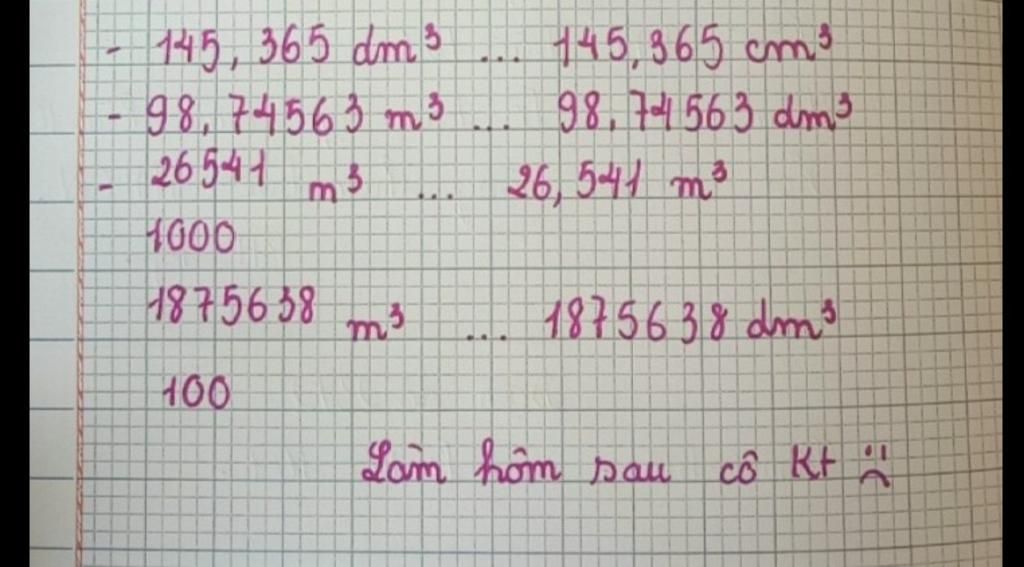 - 145, 365 dm³ ... 145, 365 cm³
- 98, 74563 m³ ... 98, 74563 dm³
- 26541 m³ ... 26, 541 m³
1000
1875638 m³ ... 1875638 dm³
100
Làm hôm sau cô Kt :(